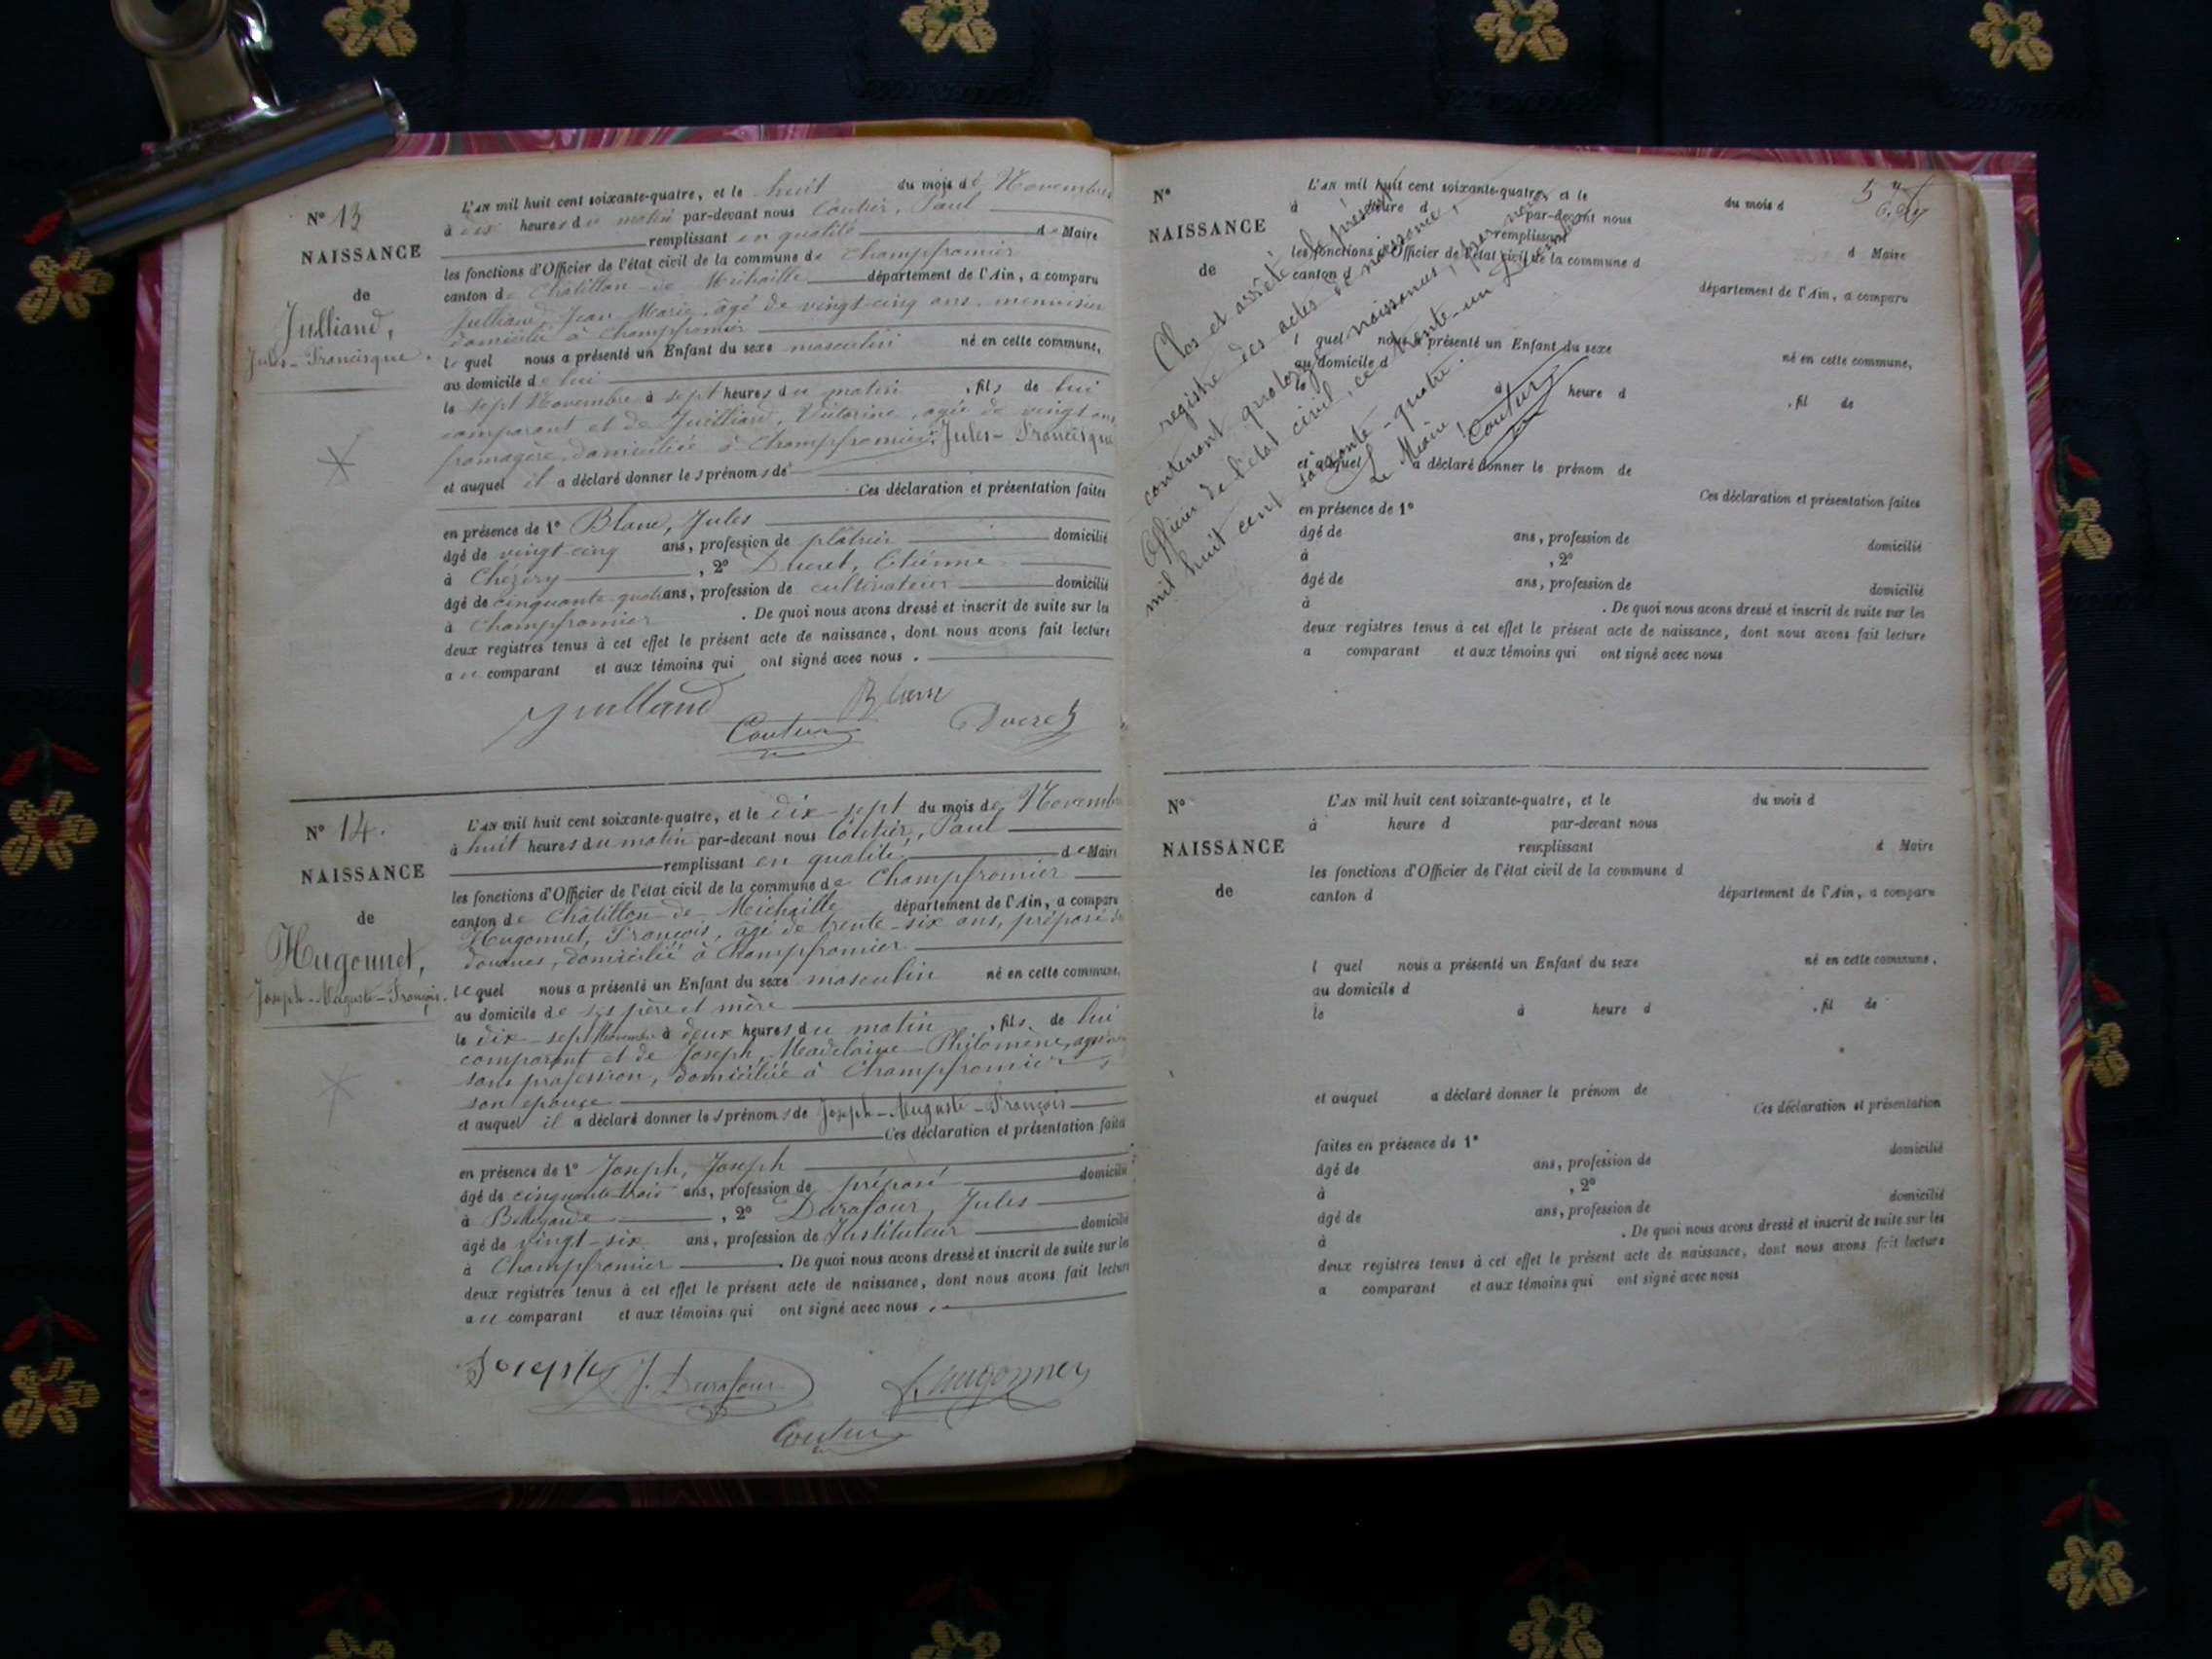 N° 13
NAISSANCE
de
Julliand,
Jules-Francisque.
L'AN mil huit cent soixante-quatre, et le huit du mois de Novembre
à dix heures du matin par-devant nous Coutier, Paul
remplissant en qualité de Maire
les fonctions d'Officier de l'état civil de la commune de Champfromier
canton de Châtillon-de-Michaille département de l'Ain, a comparu
Julliand, Jean Marie, âgé de vingt-cinq ans, menuisier
domicilié à Champfromier
lequel nous a présenté un Enfant du sexe masculin né en cette commune,
au domicile de lui
le sept Novembre à sept heures du matin, fils de lui
comparant et de Juilliard, Victorine, agée de vingt ans
fromagère, domiciliée à Champfromier. Jules-Francisque
et auquel il a déclaré donner les prénoms de
Ces déclaration et présentation faites
en présence de 1° Blanc, Jules
âgé de vingt-cinq ans, profession de plâtrier domicilié
à Chézery, 2° Ducret, Etienne
âgé de cinquante quatre ans, profession de cultivateur domicilié
à Champfromier. De quoi nous avons dressé et inscrit de suite sur les
deux registres tenus à cet effet le présent acte de naissance, dont nous avons fait lecture
au comparant et aux témoins qui ont signé avec nous.
Julliand Blanc
Coutier Ducret
N° 14.
NAISSANCE
de
Hugonnet,
Joseph-Auguste-François.
L'AN mil huit cent soixante-quatre, et le dix-sept du mois de Novembre
à huit heures du matin par-devant nous Coutier, Paul
remplissant en qualité, de Maire
les fonctions d'Officier de l'état civil de la commune de Champfromier
canton de Châtillon-de-Michaille département de l'Ain, a comparu
Hugonnet, François, âgé de trente-six ans, préposé des
douanes, domicilié à Champfromier
lequel nous a présenté un Enfant du sexe masculin né en cette commune,
au domicile de ses père et mère
le dix-sept Novembre à deux heures du matin, fils de lui
comparant et de Joseph, Madelaine-Philomène, agée
sans profession, domiciliée à Champfromier
son épouse
et auquel il a déclaré donner les prénoms de Joseph-Auguste-François
Ces déclaration et présentation faites
en présence de 1° Joseph, Joseph
âgé de cinquante trois ans, profession de préposé domicilié
à Bellegarde, 2° Durafour, Jules
âgé de vingt-six ans, profession de Instituteur domicilié
à Champfromier. De quoi nous avons dressé et inscrit de suite sur les
deux registres tenus à cet effet le présent acte de naissance, dont nous avons fait lecture
au comparant et aux témoins qui ont signé avec nous.
Joseph J. Durafour Hugonnet
Coutier
N°
NAISSANCE
de
L'AN mil huit cent soixante-quatre, et le du mois d
à heure d par-devant nous
remplissant d Maire
les fonctions d'Officier de l'état civil de la commune d
canton d département de l'Ain, a comparu
l quel nous a présenté un Enfant du sexe né en cette commune,
au domicile d
le à heure d , fil de
et auquel a déclaré donner le prénom de
Ces déclaration et présentation faites
en présence de 1°
âgé de ans, profession de domicilié
à , 2°
âgé de ans, profession de domicilié
à . De quoi nous avons dressé et inscrit de suite sur les
deux registres tenus à cet effet le présent acte de naissance, dont nous avons fait lecture
a comparant et aux témoins qui ont signé avec nous
Clos et arrêté le présent
registre des actes de naissance,
contenant quatorze naissances, par nous,
Officier de l'état civil, ce trente-un Décembre
mil huit cent soixante-quatre.
Le Maire, Coutier
N°
NAISSANCE
de
L'AN mil huit cent soixante-quatre, et le du mois d
à heure d par-devant nous
remplissant d Maire
les fonctions d'Officier de l'état civil de la commune d
canton d département de l'Ain, a comparu
l quel nous a présenté un Enfant du sexe né en cette commune,
au domicile d
le à heure d , fil de
et auquel a déclaré donner le prénom de
Ces déclaration et présentation
faites en présence de 1°
âgé de ans, profession de domicilié
à , 2°
âgé de ans, profession de domicilié
à . De quoi nous avons dressé et inscrit de suite sur les
deux registres tenus à cet effet le présent acte de naissance, dont nous avons fait lecture
a comparant et aux témoins qui ont signé avec nous